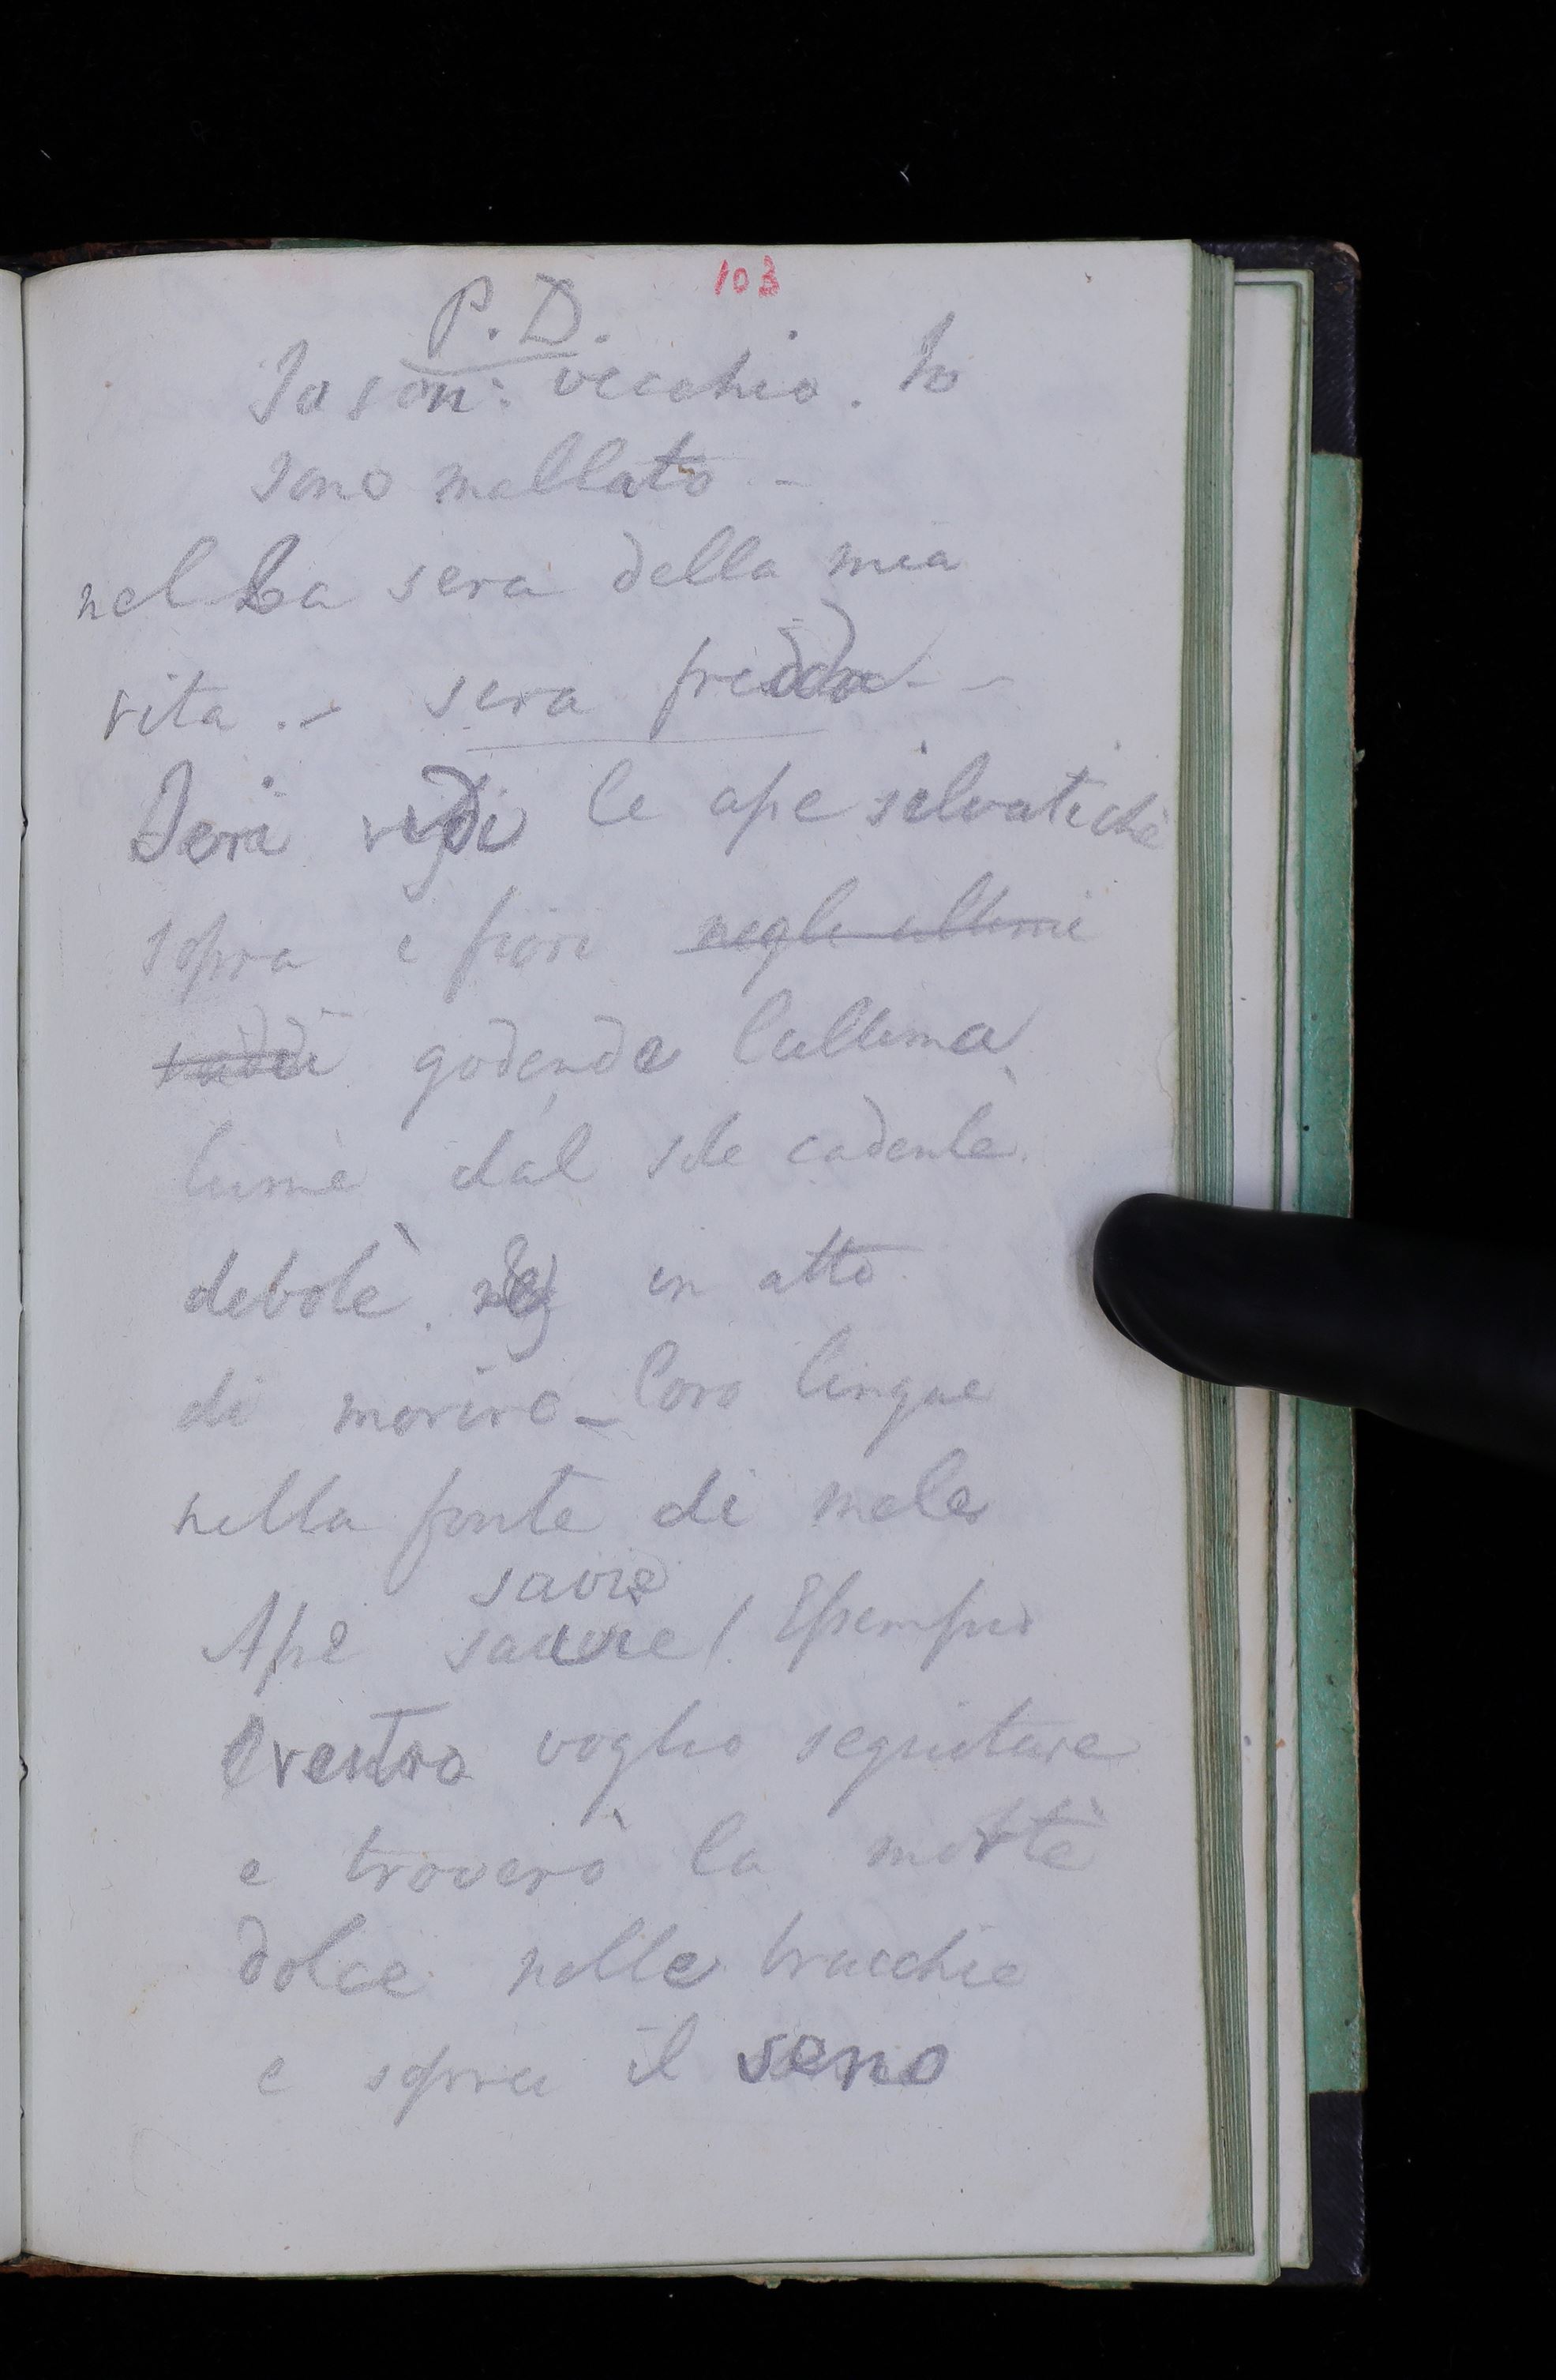 103
P. D.
Io son: vecchio. Io
sono mallato -
nella sera della mia
vita.- sera fredda - -
Ieri vidi le ape silvatiche
sopra i fiori negli ultimi
raddi godende l'ultima
lume dal sole cadente.
debolè. in atto
di morire_ loro lingue
nella fonte di mele
savie
Ape savie! Essempio
vestro voglio seguitare
e troverò la mortè
dolce nelle bracchie
e sopra il seno